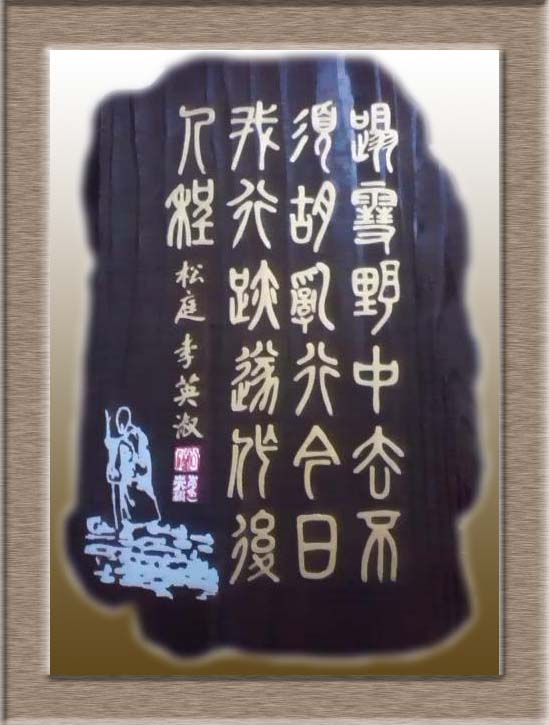 踏雪野中去不
須胡亂行今日
我行跡遂作後
人程 松庭 李英淑